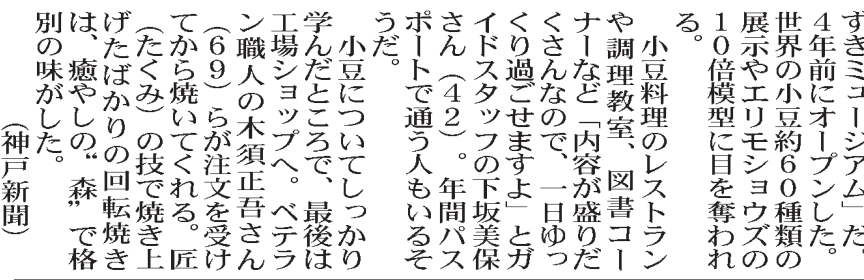 ずきミュージアム」だ。
4年前にオープンした。
世界の小豆約60種類の
展示やエリモショウズの
10倍模型に目を奪われ
る。
小豆料理のレストラン
や調理教室、図書コー
ナーなど「内容が盛りだ
くさんなので、一日ゆっ
くり過ごせますよ」とガ
イドスタッフの下坂美保
さん(42)。年間パス
ポートで通う人もいるそ
うだ。
小豆についてしっかり
学んだところで、最後は
工場ショップへ。ベテラ
ン職人の木須正吾さん
(69)らが注文を受け
てから焼いてくれる。匠
(たくみ)の技で焼き上
げたばかりの回転焼き
は、癒やしの“森”で格
別の味がした。
(神戸新聞)